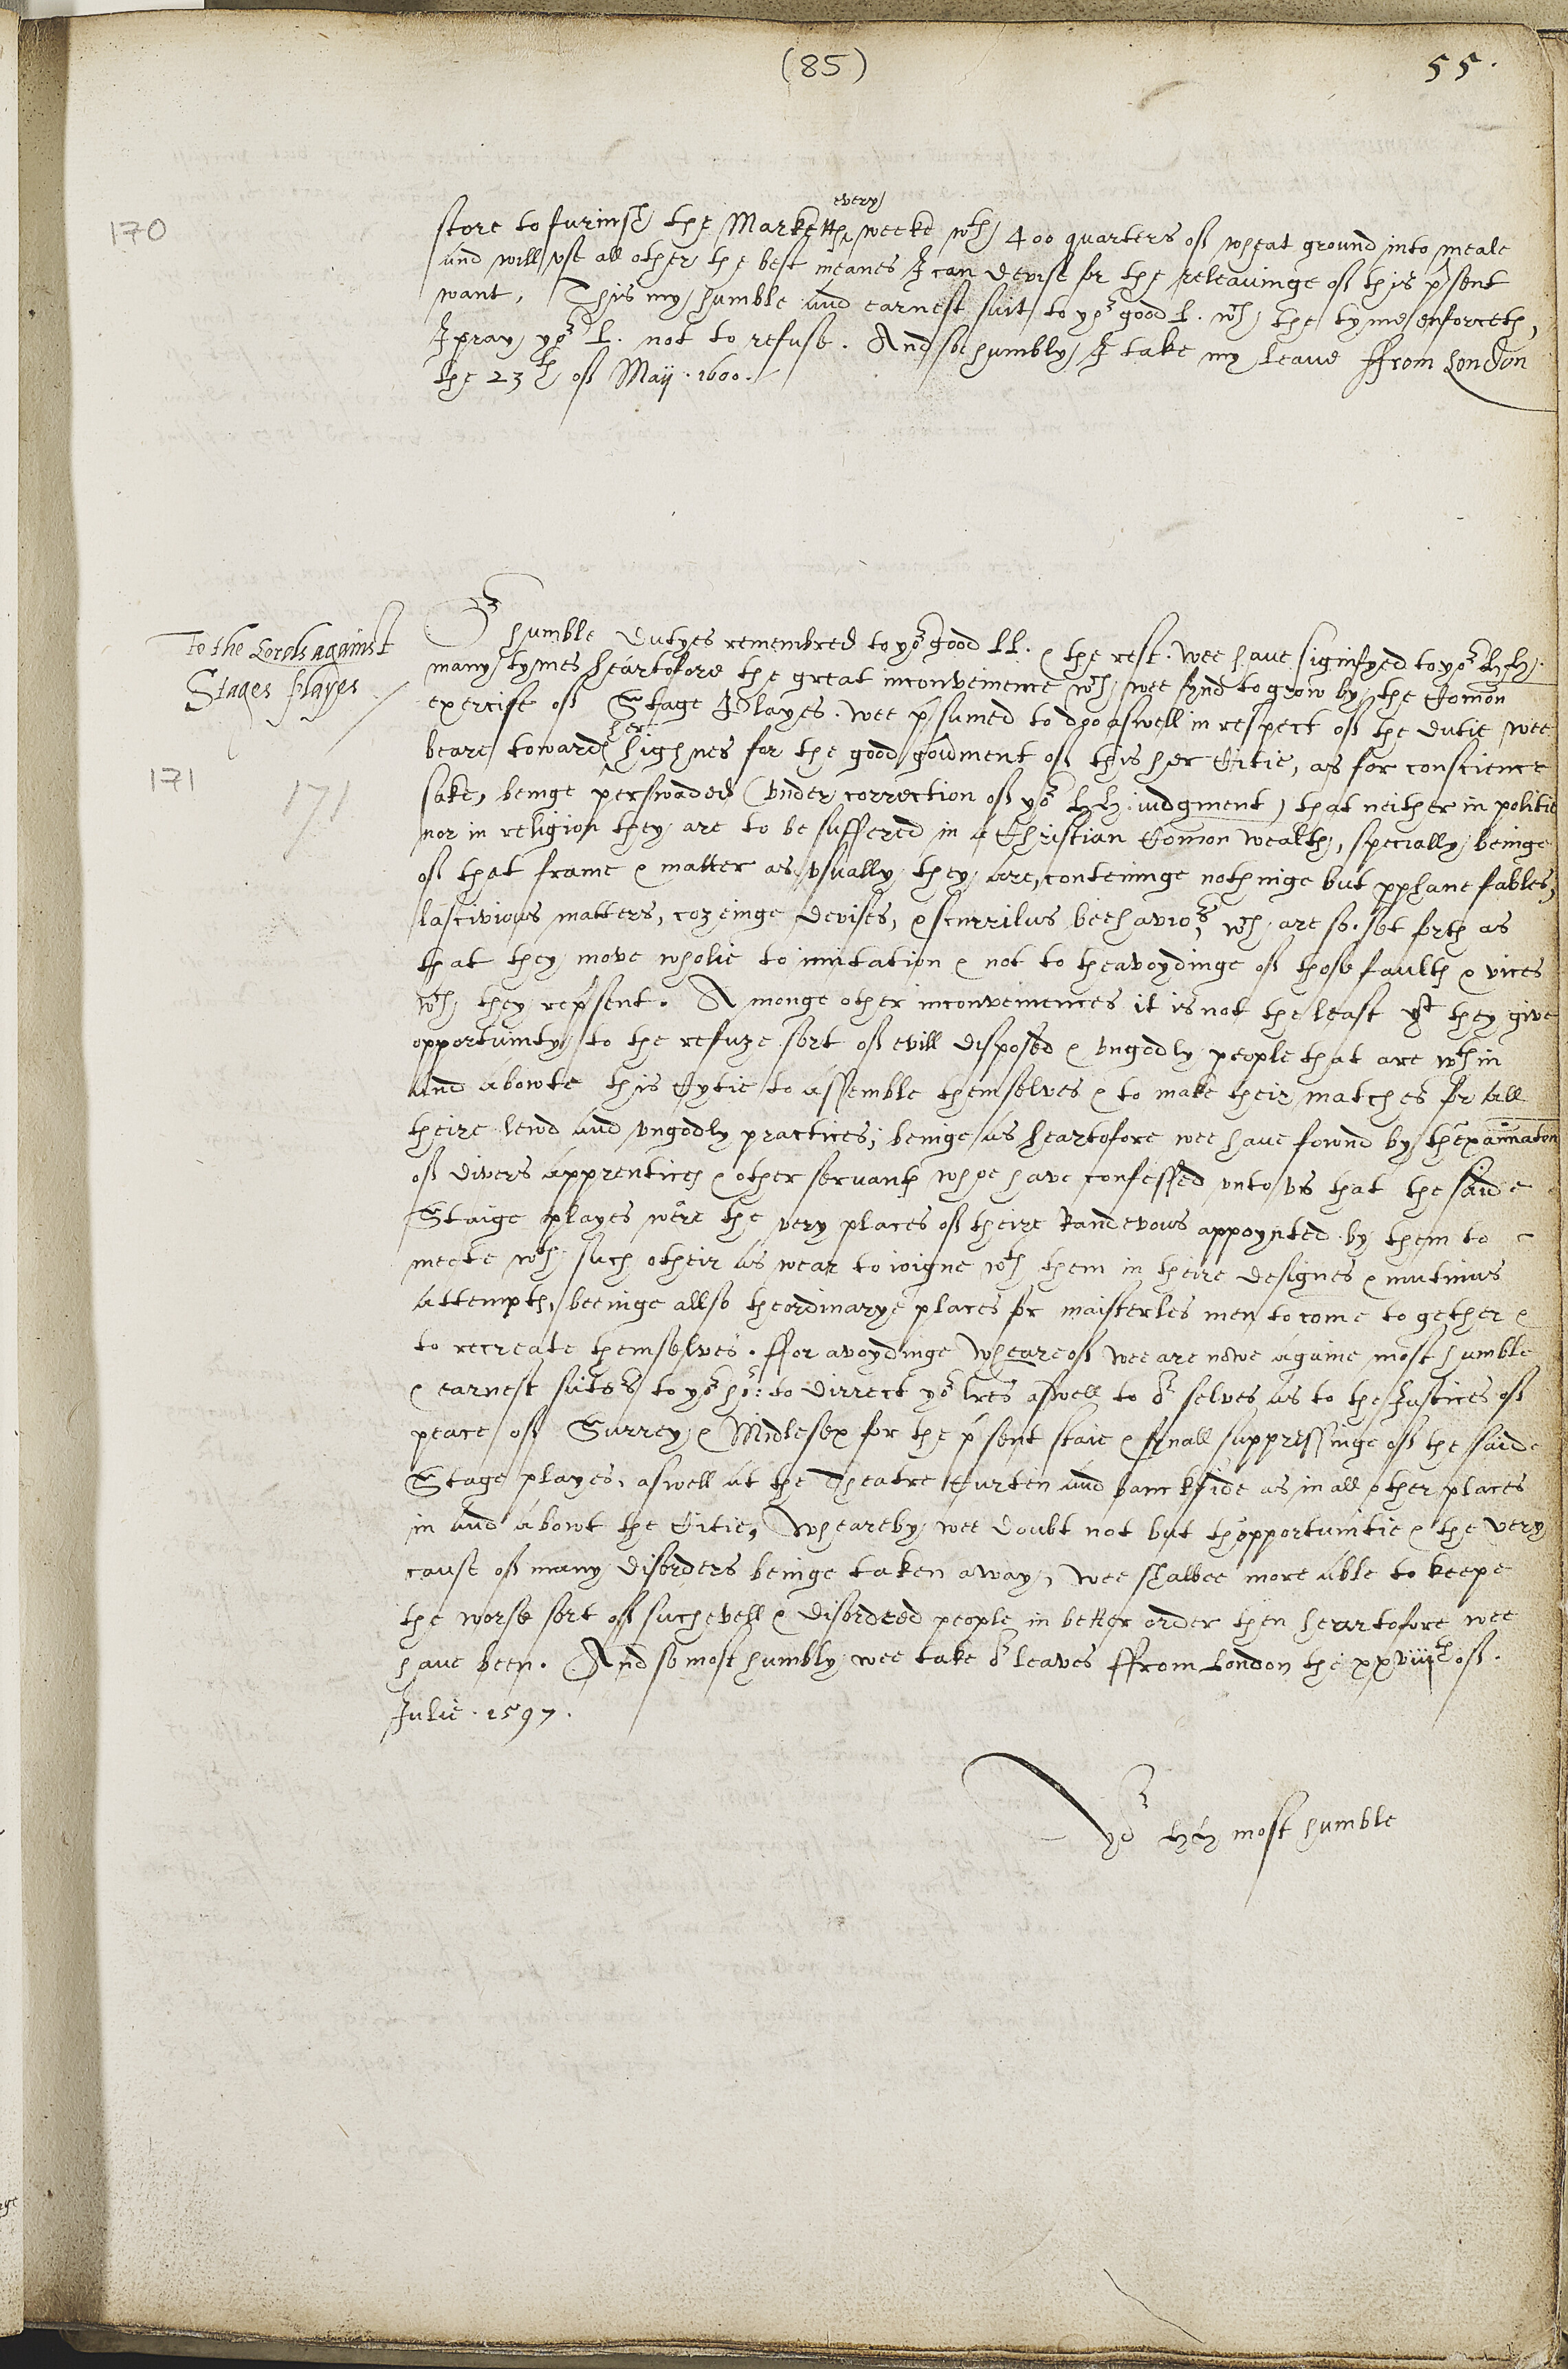 (85)
55.
170
every
store to furnish the Markett weeke wth 400 quarters of wheat ground into meale
and will vse all other the best meanes I can devise for the releauinge of this p̱sent
want, This my humble and earnest suit to yor good L. wch the tyme enforceth,
I pray yor L. not to refuse. And soe humbly I take my leaue ffrom London
the 23th of Maij. 1600.
To the Lords against
Stages playes
171
171
Or humble dutyes remembred to yor good LL. & the rest. Wee haue signifyed to yor HH.
many tymes heartofore the great inconvenience wch wee fynd to grow by the Comon
exercise of Stage Playes. wee p̱sumed to doo aswell in respect of the dutie wee
her
beare towards highnes for the good gou̱ment of this her Citie, as for conscience
sake, beinge perswaded (vnder correction of yor HH. iudgment) that neither in politie
nor in religion they are to be suffered in a Christian Comon wealth, specially beinge
of that frame & matter as vsually they are, conteininge nothinge but p̱phane fables,
lascivious matters, cozeinge devises, & scurrilus beehaviors, wch are so set forth as
that they move wholie to imitation & not to theavoydinge of those faults & vices
wch they rep̱sent. Amonge other inconveniences it is not the least yt they give
opportunity to the refuze sort of evill disposed & vngodly people that are wthin
and abowte this Cytie to assemble themselves & to make their matches for all
theire lewd and vngodly practices; beinge as heartofore wee haue fownd by thexaminaton
of divers apprentices & other servants whoe have confessed vnto vs that the saide
Staige playes were the very places of theire Randevous appoynted by them to
meete wth such otheir as wear to ioigne wth them in theire designes & mutinus
attempts, beeinge allso theordinarye places for maisterles men to come together &
to recreate themselves. ffor avoydinge wheareof wee are nowe againe most humble
& earnest suitors to yor ho: to dirrect yor lres aswell to or selves as to the Justices of
peace of Surrey & Midlesex for the p̱sent staie & fynall suppressinge of the saide
Stage playes, aswell at the Theatre Curten and banckside as in all other places
in and abowt the Citie, Wheareby wee doubt not but thopportunitie & the very
cause of many disorders beinge taken away, wee shalbee more able to keepe
the worse sort of such evell & disordered people in better order then heartofore wee
haue been. And so most humbly wee take or leaves ffrom London the xxviijth of
Julie. 1597.
Yor HH most humble